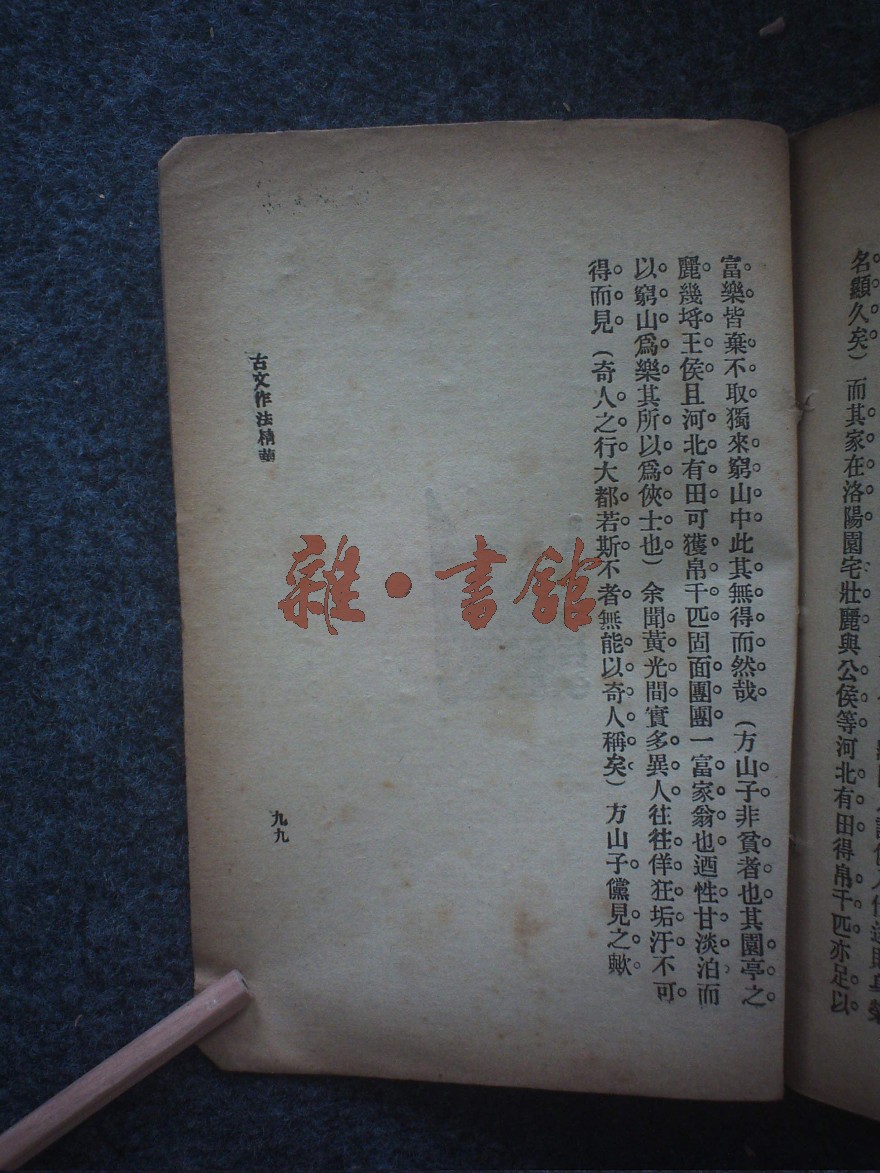 名顯久矣）而其家在洛陽園宅壯麗與公侯等河北有田得帛千匹亦足以
富樂皆棄不取獨來窮山中此其無得而然哉（方山子非貧者也其園亭之
麗幾埒王侯且河北有田可獲帛千匹固面團團一富家翁也迺性甘淡泊而
以窮山爲樂其所以爲俠士也）余聞黃光間實多異人往往佯狂垢汙不可
得而見（奇人之行大都若斯不者無能以奇人稱矣）方山子儻見之歟
古文作法精華
九九
雜·書館